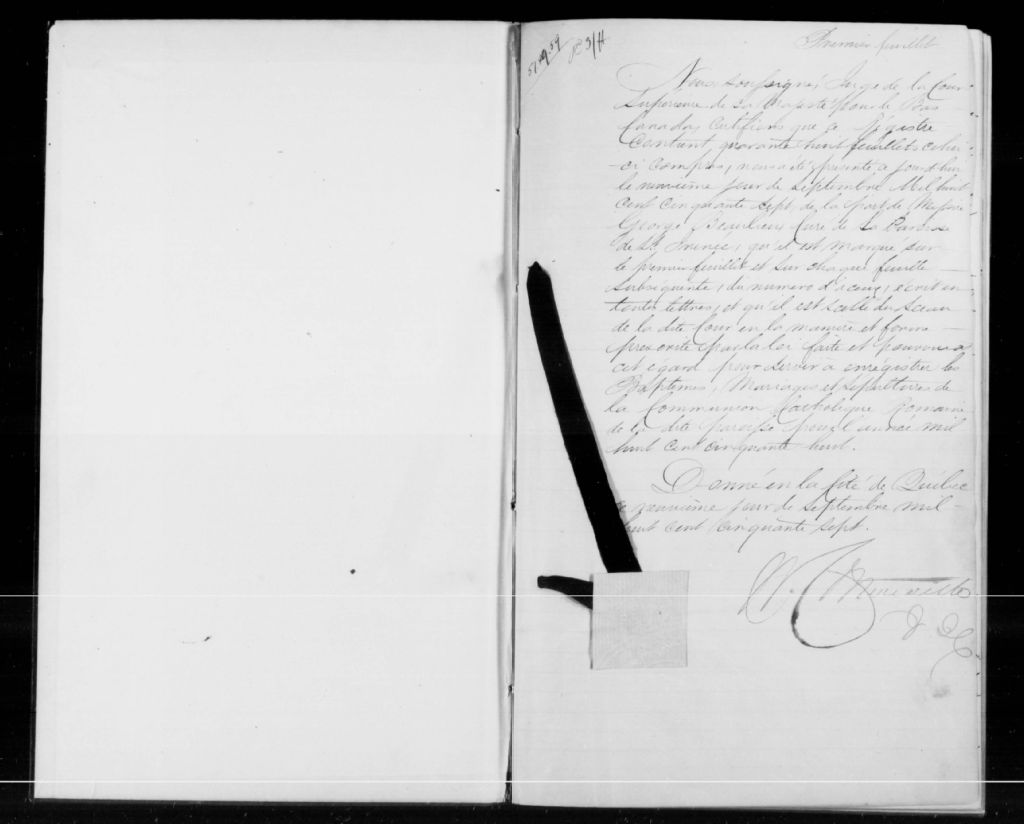 Premier feuillet
Nous soussigné, Juge de la Cour
Supérieure de Sa Majesté pour le Bas
Canada, Certifions que ce Régistre
Contient quarante huit feuillets celui
-ci compris, nous a été présenté aujourd'hui
le neuvième jour de Septembre Mil huit
cent cinquante sept, de la part de Messire
George Beaulieu Curé de la Paroisse
de St. Irénée, qu'il est marqué sur
le premier feuillet et sur chaque feuillet
subséquente, du numero d'iceux, écrit en
toutes lettres, et qu'il est scellé du Sceau
de la dite Cour en la manière et forme
prescrite par la loi faite et pourvue à
cet egard pour servir à enrégistrer les
Baptêmes, Marriages et Sépultures de
la Communion Catholique Romaine
de la dite paroisse pour l'année mil
huit cent cinquante huit.
Donné en la Cité de Québec
le neuvième jour de Septembre mil
huit cent cinquante sept.